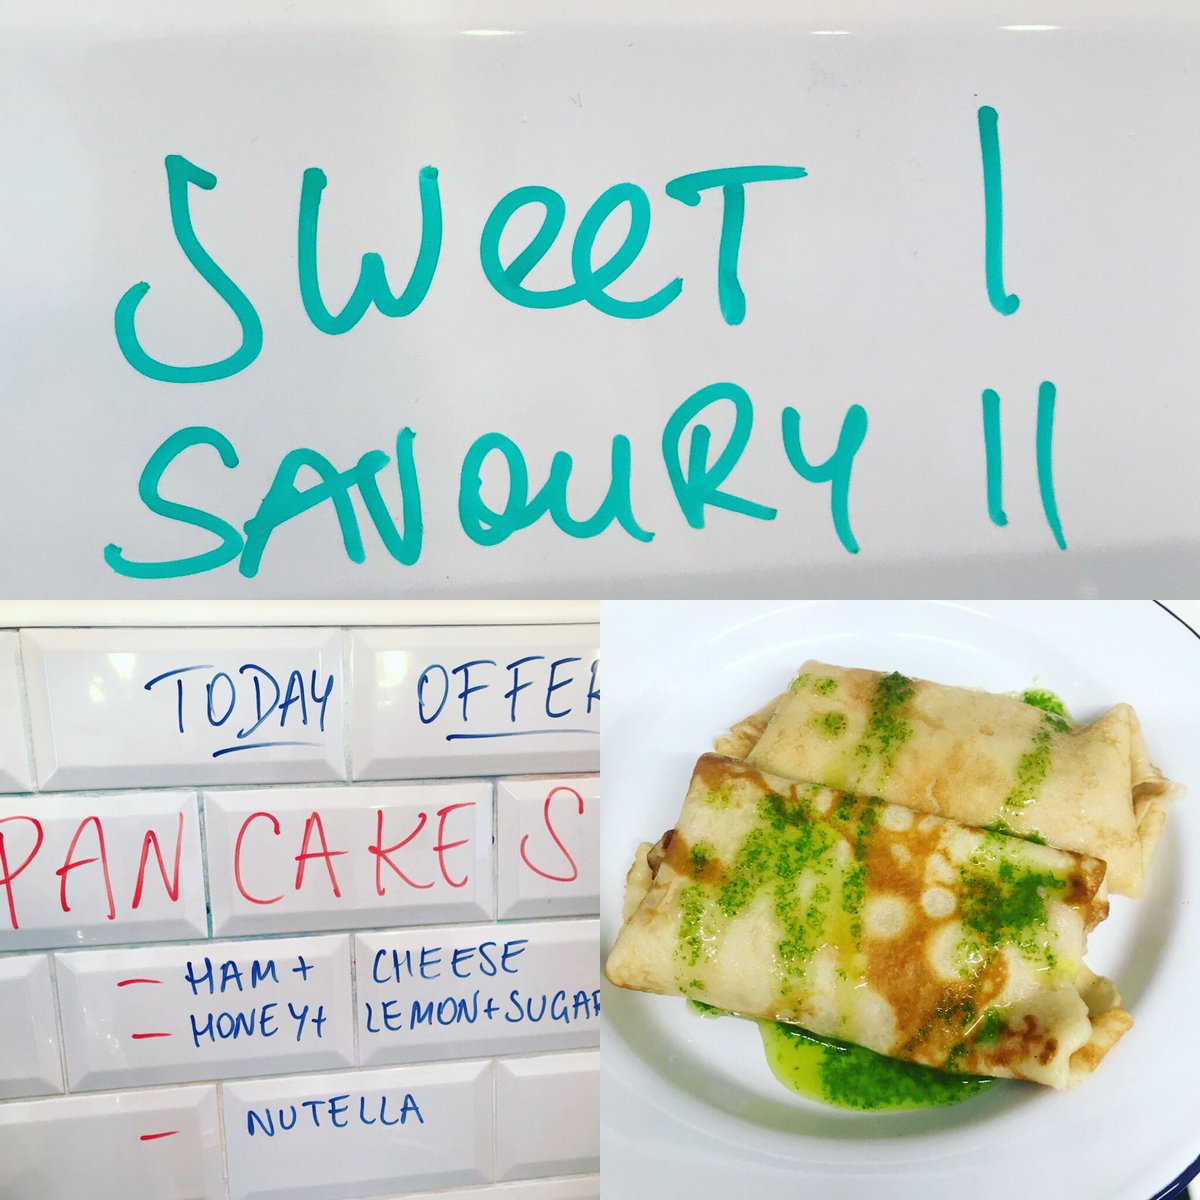 SWEET I
SAVOURY II
TODAY OFFER
PANCAKES
- HAM + CHEESE
- HONEY + LEMON + SUGAR
- NUTELLA